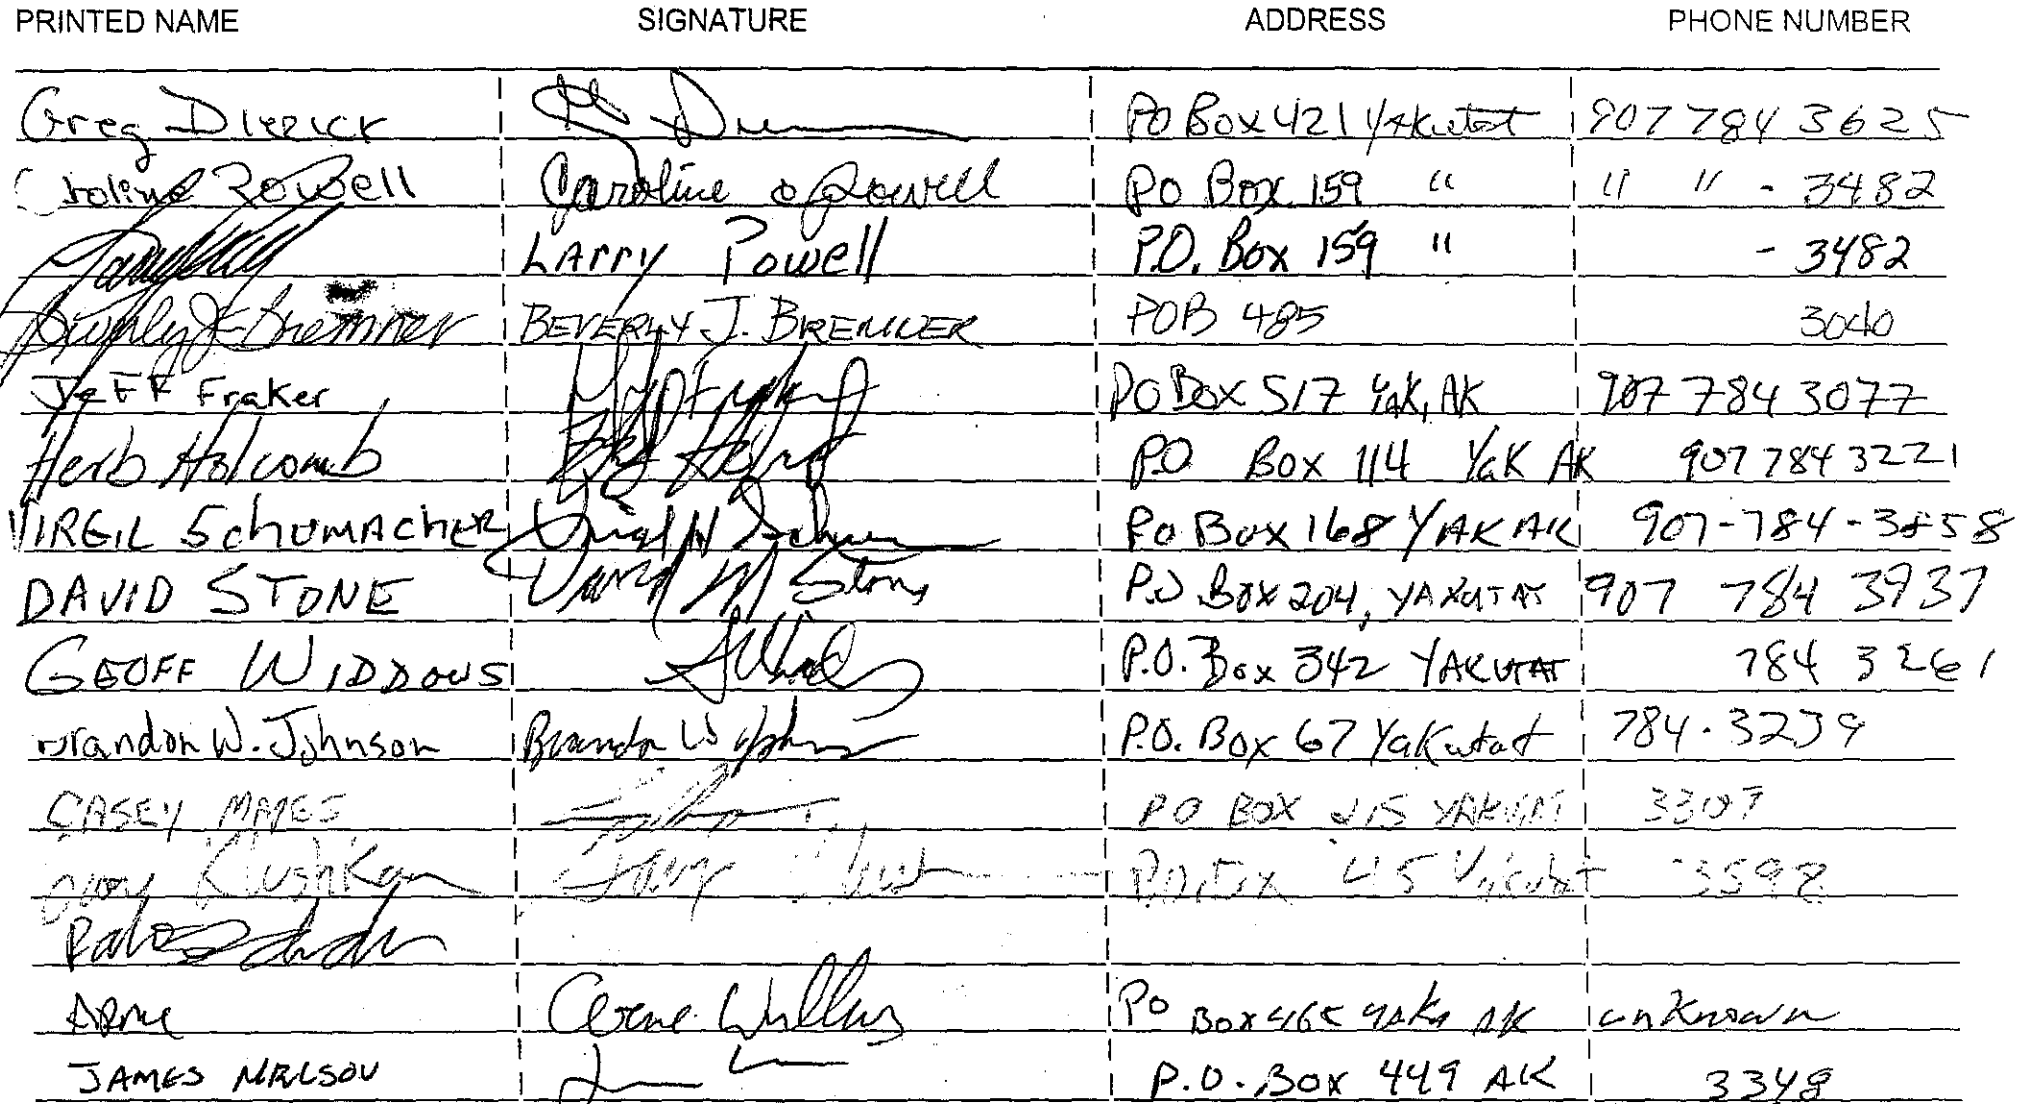 PRINTED NAME SIGNATURE ADDRESS PHONE NUMBER
Greg Dierick PO Box 421 Yakutat 907 784 3625
Caroline Powell Caroline Powell PO Box 159 " " " - 3482
LArry Powell P.O. Box 159 " - 3482
Beverly J Bremner BEVERLY J. BREMNER POB 485 3040
Jeff Fraker Jeff Fraker PO Box 517 Yak, AK 907 784 3077
Herb Holcomb P.O Box 114 YaK AK 907 784 3221
VIRGIL SchUMAcHER Po Box 168 YAK AK 907-784-3858
DAVID STONE David M Stone P.O Box 204, YAKUTAT 907 784 3937
GEOFF WIDDOWS P.O. Box 342 YAKUTAT 784 3261
Brandon W. Johnson Brandon W Johnson P.O. Box 67 Yakutat 784-3239
CASEY MAPES PO BOX 215 YAKUTAT 3307
P.O. Box 45 Yakutat 3598
Arne PO Box 465 AK unknown
JAMES NELSON P.O. Box 449 AK 3348